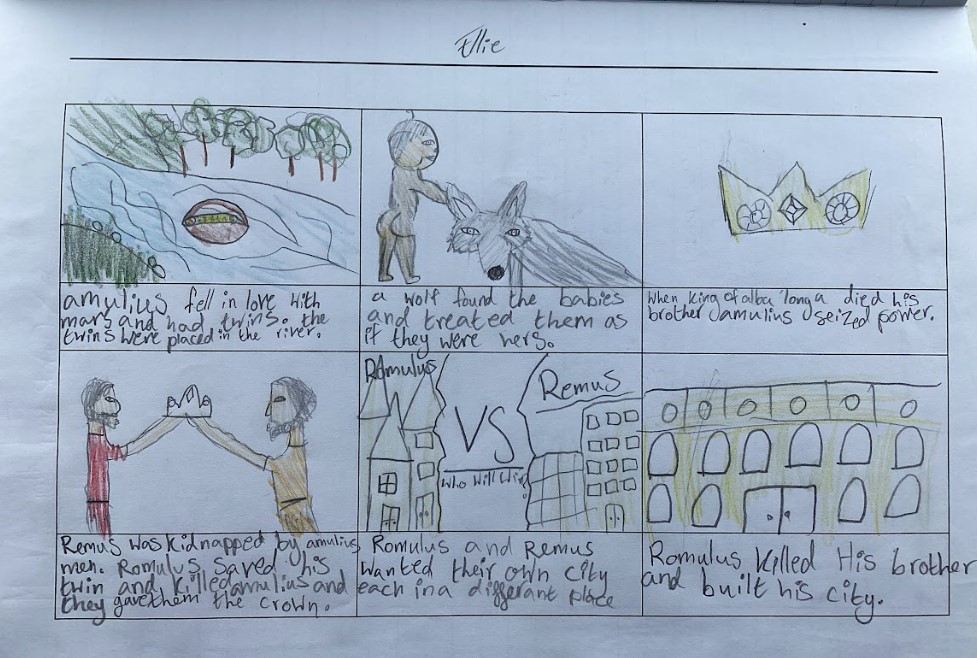 Ellie
amulius fell in love with
mars and had twins. the
twins were placed in the river.
a wolf found the babies
and treated them as
if they were hers.
When King of alba longa died his
brother amulius seized power.
Remus was kidnapped by amulius
men. Romulus saved his
twin and killed amulius and
they gave them the crown.
Romulus
VS
Remus
Who will win?
Romulus and Remus
wanted their own city
each in a differant place
Romulus killed His brother
and built his city.